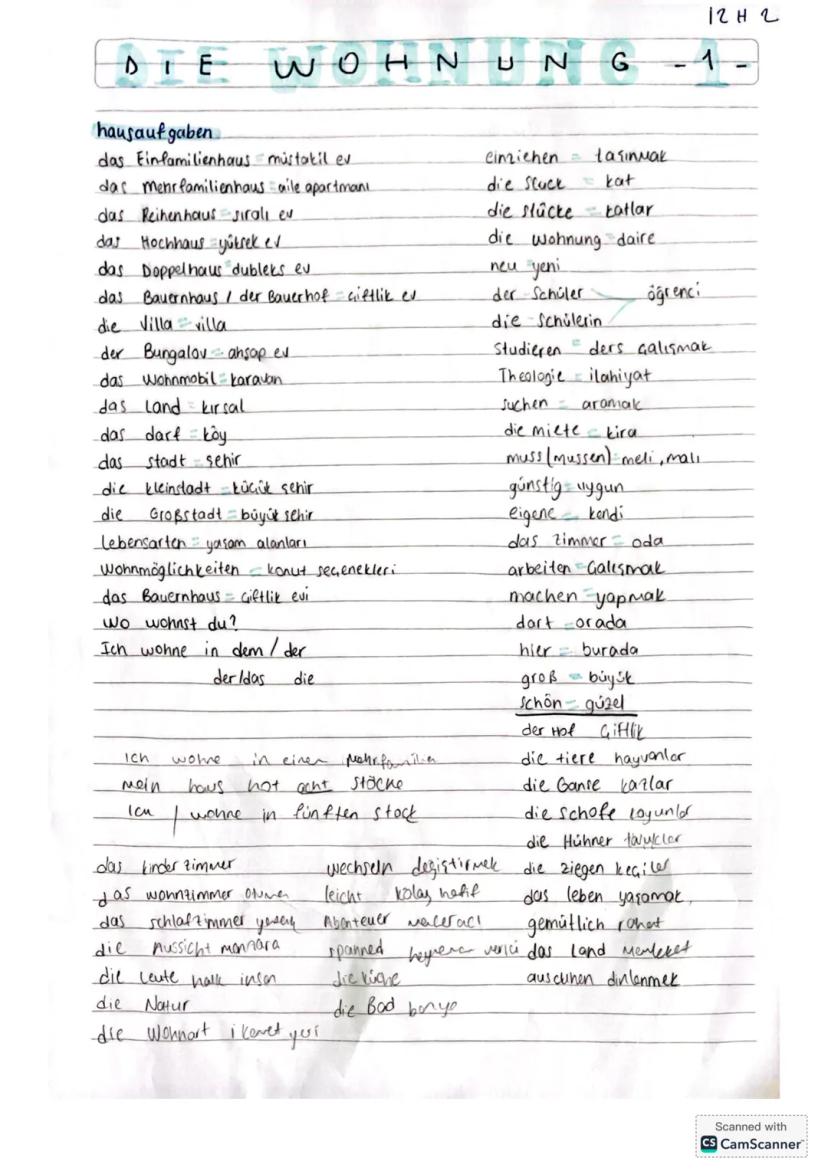 12 H 2
DIE WOHNUNG -1-
hausaufgaben
das Einfamilienhaus = müstakil ev
das Mehrfamilienhaus = aile apartmanı
das Reihenhaus = sıralı ev
das Hochhaus = yüksek ev
das Doppelhaus = dubleks ev
das Bauernhaus / der Bauerhof = çiftlik ev
die Villa = villa
der Bungalov = ahşap ev
das Wohnmobil = karavan
das Land = kırsal
das darf = köy
das stadt = şehir
die kleinstadt = küçük şehir
die Großstadt = büyük şehir
Lebensarten = yaşam alanları
Wohnmöglichkeiten = konut seçenekleri
das Bauernhaus = çiftlik evi
Wo wohnst du?
Ich wohne in dem / der
der/das die
einziehen = taşınmak
die stuck = kat
die stücke = katlar
die Wohnung = daire
neu = yeni
der Schüler
öğrenci
die Schülerin
Studieren = ders çalışmak
Theologie = ilahiyat
suchen = aramak
die miete = kira
muss (mussen) = meli, malı
günstig = uygun
eigene = kendi
das zimmer = oda
arbeiten = çalışmak
machen = yapmak
dort = orada
hier = burada
groß = büyük
schön = güzel
der Hof çiftlik
die tiere hayvanlar
die Ganse kazlar
die schafe koyunlar
die Hühner tavuklar
die ziegen keçiler
das leben yaşamak
gemütlich rahat
das land memleket
dinlenmek
Ich wohne in einen Mehrfamilien
Mein haus hat acht stöcke
Ich / wohne in fünften stock
das kinderzimmer
das wohnzimmer
das schlafzimmer
die Aussicht manzara
die Leute halk insan
die Natur
die Wohnart
wechseln değiştirmek
leicht kolay hafif
Abenteuer maceracı
die küche
die Bad banyo
Scanned with
CS CamScanner